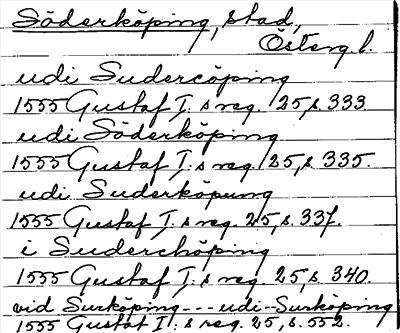 Söderköping, stad,
Österg.l.
udi Sudercöping
1555 Gustaf I.s reg. 25, s. 333.
udi Söderköping
1555 Gustaf I.s reg. 25, s. 335.
udi Suderköpung
1555 Gustaf I.s reg. 25, s. 337.
i Suderchöping
1555 Gustaf I.s reg. 25, s. 340.
vid Surköping --- udi Surköping
1555 Gustaf I.s reg. 25, s. 552